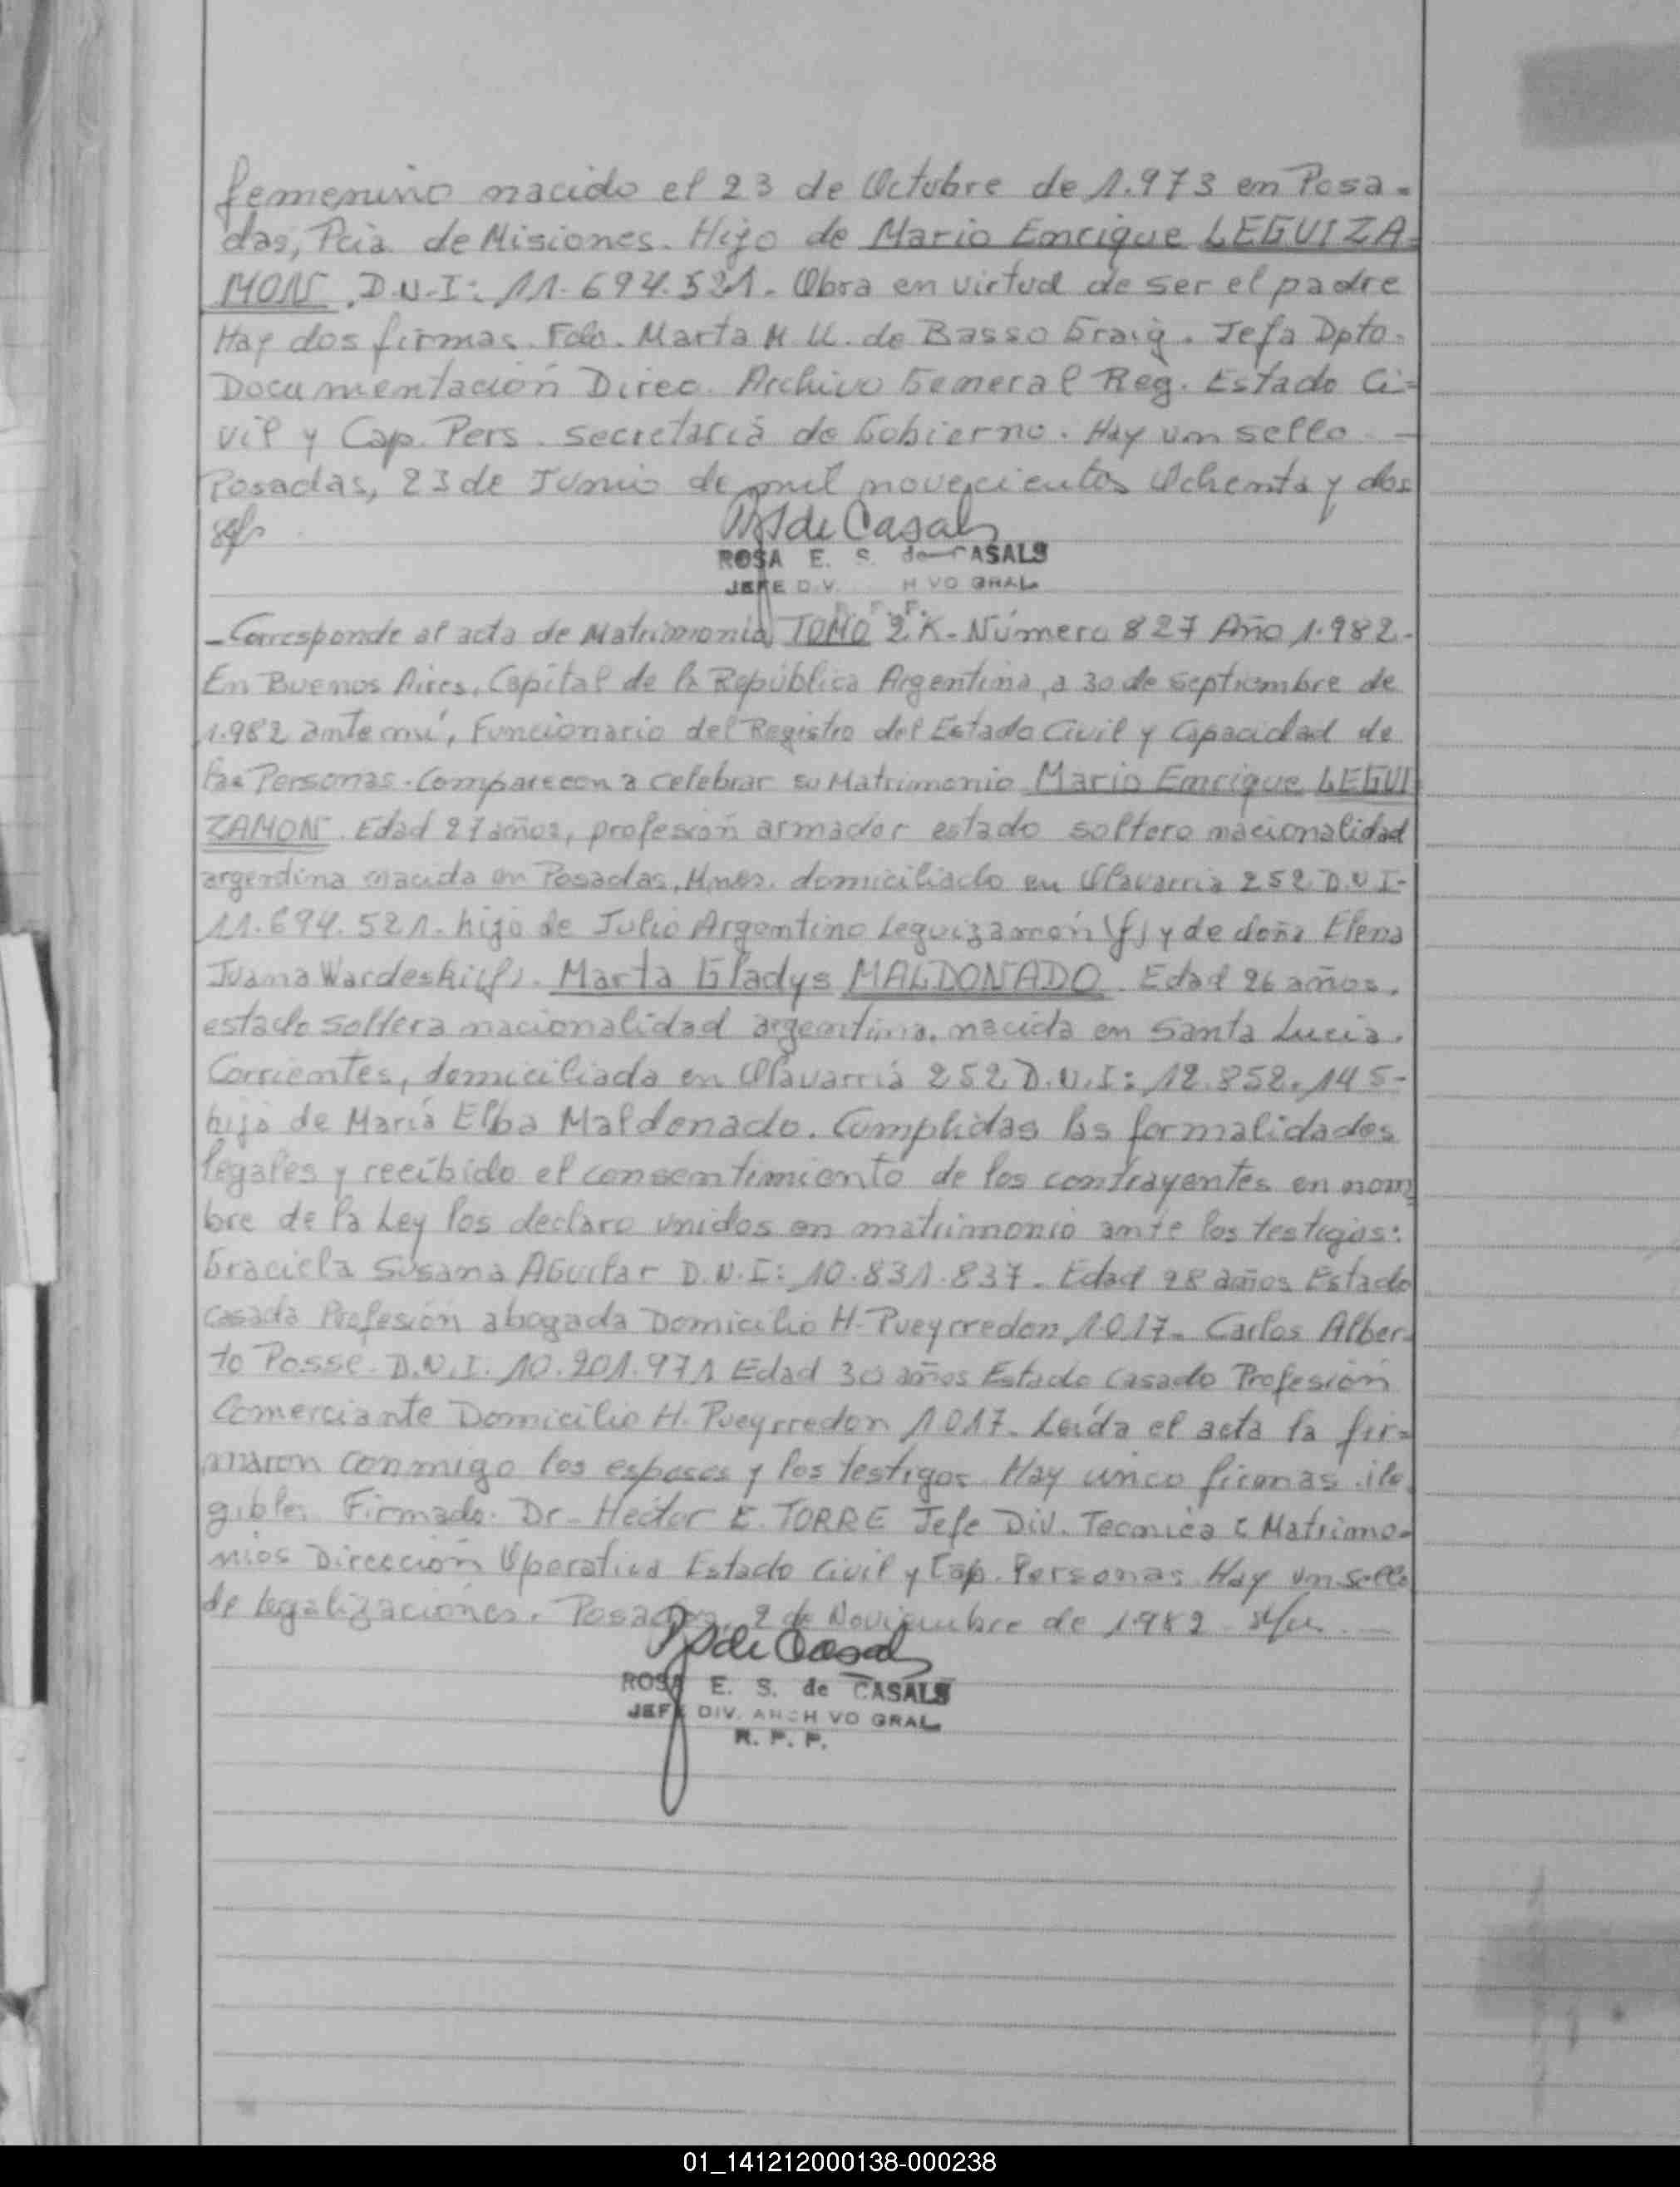 femenino nacido el 23 de Octubre de 1.973 en Posa=
das, Pcia. de Misiones. Hijo de Mario Enrique LEGUIZA=
MON. D.N.I: 11.694.521. Obra en virtud de ser el padre
Hay dos firmas. Fdo. Marta M. U. de Basso Graig. Jefa Dpto.
Documentación Direc. Archivo General Reg. Estado Ci=
vil y Cap. Pers. Secretaría de Gobierno. Hay un sello. —
Posadas, 23 de Junio de mil novecientos Ochenta y dos
ROSA E. S. de CASALS
JEFE DIV. H VO GRAL.
— Corresponde al acta de Matrimonio TOMO 2 K. Número 827 Año 1.982.
En Buenos Aires, Capital de la República Argentina, a 30 de septiembre de
1.982 ante mí, Funcionario del Registro del Estado Civil y Capacidad de
las Personas. Comparecen a celebrar su Matrimonio Mario Enrique LEGUI
ZAMON. Edad 27 años, profesión armador estado soltero nacionalidad
argentina nacido en Posadas, Mnes. domiciliado en Olavarria 252 D.N.I.
11.694.521. hijo de Julio Argentino Leguizamón (f) y de doña Elena
Juana Wardeski (f). Marta Gladys MALDONADO. Edad 26 años,
estado soltera nacionalidad argentina, nacida en Santa Lucia.
Corrientes, domiciliada en Olavarría 252 D.N.I: 12.852.145-
hija de María Elba Maldonado. Cumplidas las formalidades
legales y recibido el consentimiento de los contrayentes en nom
bre de la Ley los declaro unidos en matrimonio ante los testigos:
Graciela Susana AGuilar D.N.I: 10.831.837. Edad 28 años Estado
casada Profesión abogada Domicilio H. Pueyrredon 1017. Carlos Alber=
to Posse. D.N.I. 10.201.971 Edad 30 años Estado casado Profesión
Comerciante Domicilio H. Pueyrredon 1017. Leída el acta la fir=
maron conmigo los esposos y los testigos. Hay cinco firmas ile
gibles Firmado. Dr. Hector E. TORRE Jefe Div. Tecnica Matrimo=
nios Dirección Operativa Estado Civil y Cap. Personas. Hay un sello
de legalizaciones. Posadas, 2 de Noviembre de 1982
ROSA E. S. de CASALS
JEFE DIV. ARCH VO GRAL.
R. P. P.
01_141212000138-000238